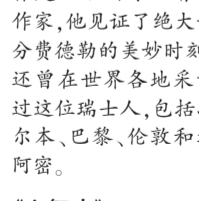 作家,他见证了绝大
分费德勒的美妙时刻
还曾在世界各地采
过这位瑞士人,包括
尔本、巴黎、伦敦和
阿密。